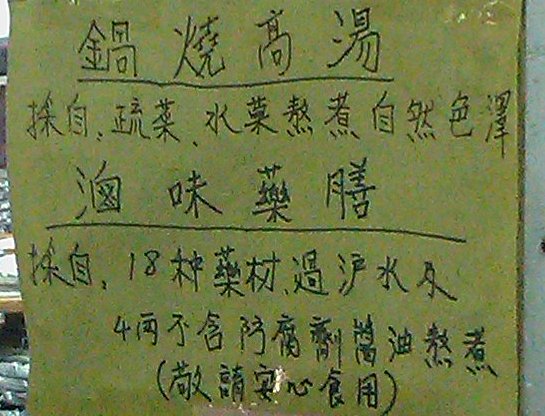 鍋燒高湯
採自、疏菜、水菓熬煮自然色澤
滷味藥膳
採自、18种藥材、過沪水及
4両不含防腐劑醬油熬煮
(敬請安心食用)